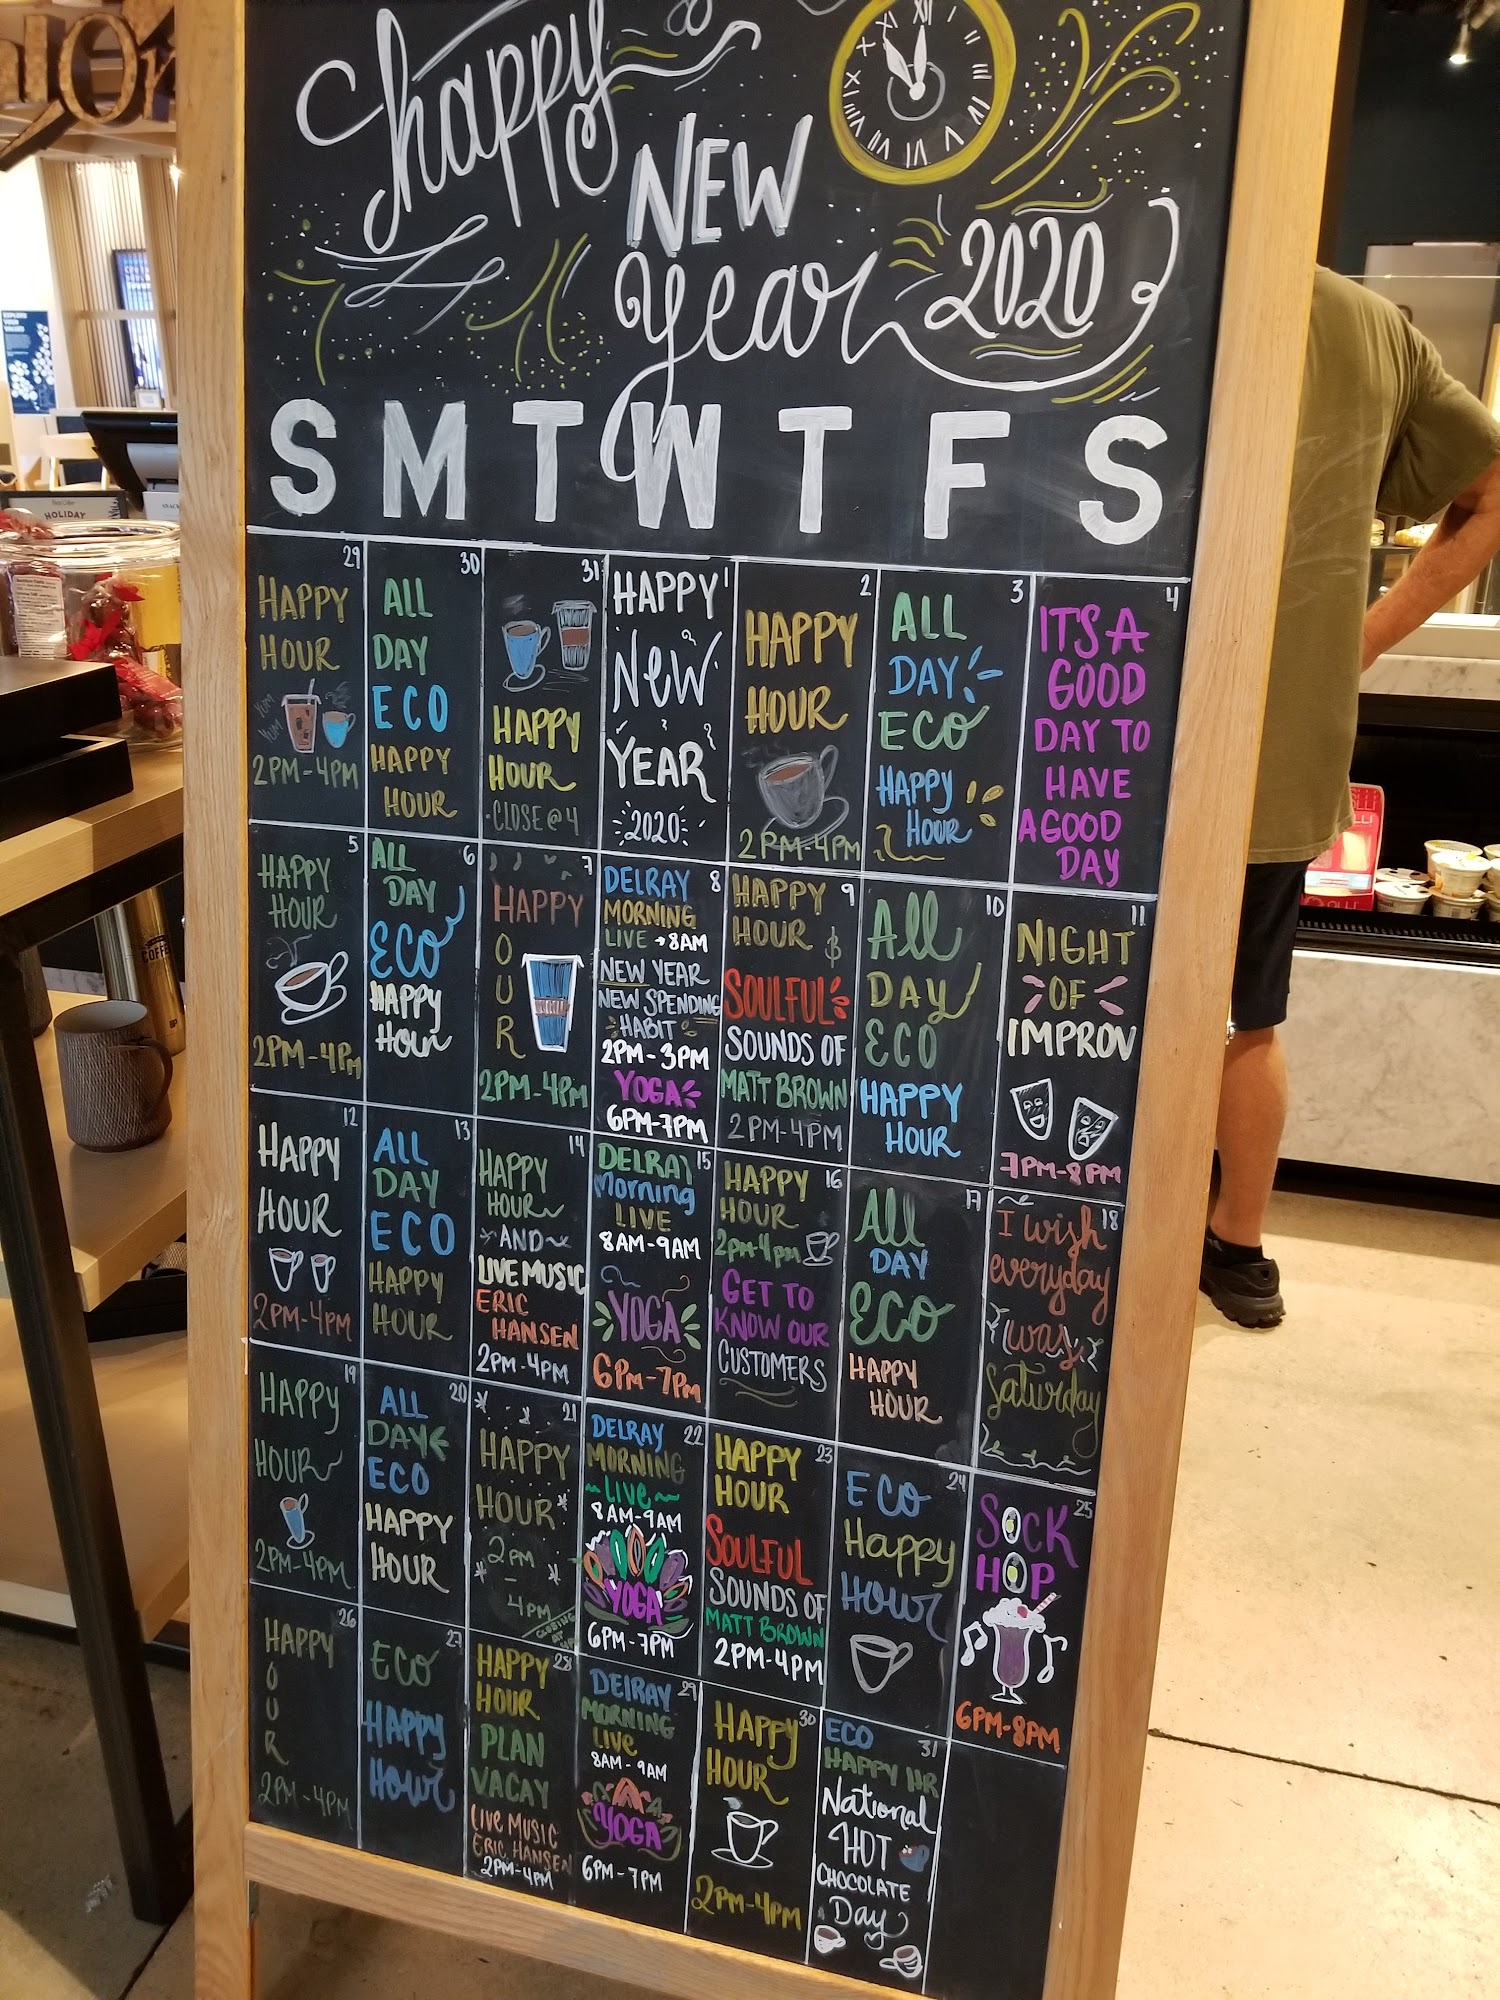 Happy
NEW
Year 2020
XII
S M T W T F S
29
HAPPY
HOUR
YUM
YUM
2PM-4PM
30
ALL
DAY
ECO
HAPPY
HOUR
31
HAPPY
HOUR
·CLOSE@4
1
HAPPY
NEW
YEAR
2020
2
HAPPY
HOUR
2PM-4PM
3
ALL
DAY
ECO
HAPPY
HOUR
4
IT'S A
GOOD
DAY TO
HAVE
A GOOD
DAY
5
HAPPY
HOUR
2PM-4PM
6
ALL
DAY
ECO
HAPPY
Hour
7
HAPPY
O
U
R
2PM-4PM
8
DELRAY
MORNING
LIVE →8AM
NEW YEAR
NEW SPENDING
HABIT
2PM-3PM
YOGA
6PM-7PM
9
HAPPY
HOUR &
SOULFUL
SOUNDS OF
MATT BROWN
2PM-4PM
10
All
DAY
ECO
HAPPY
HOUR
11
NIGHT
OF
IMPROV
7PM-8PM
12
HAPPY
HOUR
2PM-4PM
13
ALL
DAY
ECO
HAPPY
HOUR
14
HAPPY
HOUR
AND
LIVE MUSIC
ERIC
HANSEN
2PM-4PM
15
DELRAY
Morning
LIVE
8AM-9AM
YOGA
6PM-7PM
16
HAPPY
HOUR
2pm-4pm
GET TO
KNOW OUR
CUSTOMERS
17
All
DAY
ECO
HAPPY
HOUR
18
I wish
everyday
was
Saturday
19
HAPPY
HOUR
2PM-4PM
20
ALL
DAY
ECO
HAPPY
HOUR
21
HAPPY
HOUR
2PM
-
4PM
CLOSING
AT
22
DELRAY
MORNING
~Live~
8AM-9AM
YOGA
6PM-7PM
23
HAPPY
HOUR
SOULFUL
SOUNDS OF
MATT BROWN
2PM-4PM
24
ECO
Happy
Hour
25
SOCK
HOP
6PM-8PM
26
HAPPY
O
U
R
2PM-4PM
27
ECO
Happy
Hour
28
HAPPY
HOUR
PLAN
VACAY
LIVE MUSIC
ERIC HANSEN
2PM-4PM
29
DELRAY
MORNING
Live
8AM-9AM
YOGA
6PM-7PM
30
HAPPY
HOUR
2PM-4PM
31
ECO
HAPPY HR
National
HOT
CHOCOLATE
Day
HOLIDAY
EXPLORE
YOUR
COFFEE